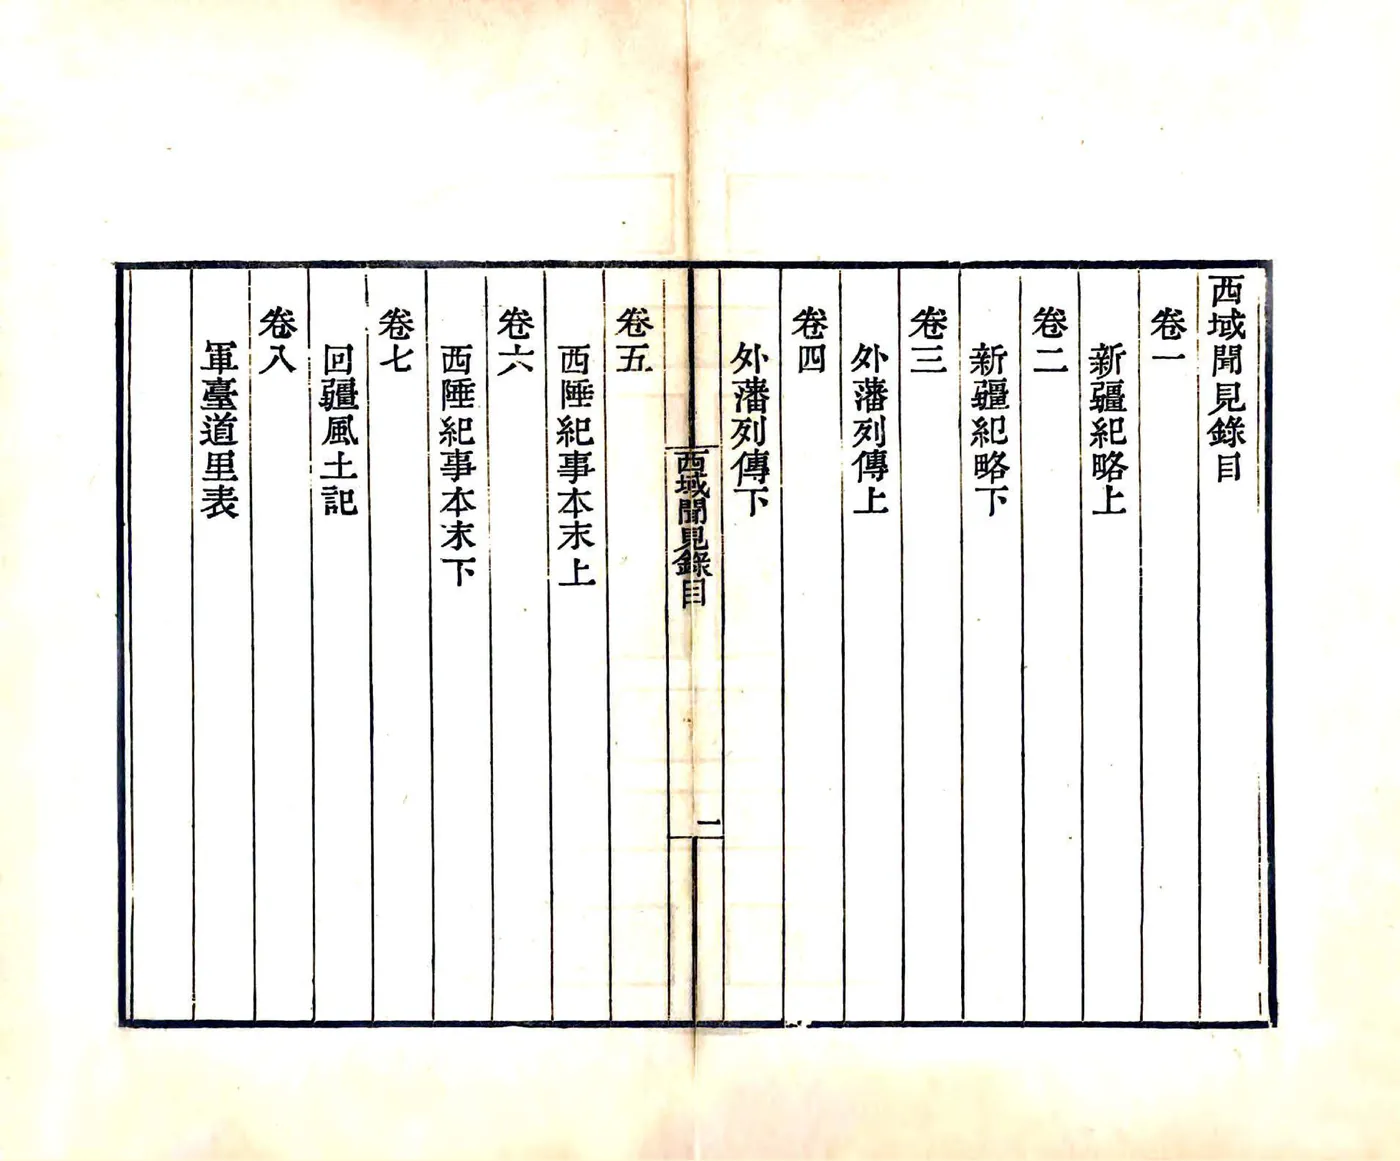 西域聞見錄目
卷一
新疆紀略上
卷二
新疆紀略下
卷三
外藩列傳上
卷四
外藩列傳下
西域聞見錄目
一
卷五
西陲紀事本末上
卷六
西陲紀事本末下
卷七
回疆風土記
卷八
軍臺道里表